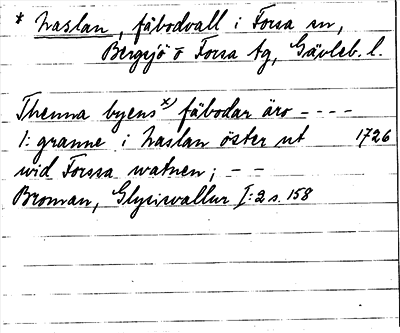 * Naslan, fäbodvall i Forsa sn,
Bergsjö o Forsa tg, Gävleb. l.
Thenna byens x) fäbodar äro - - - -
1: granne i Naslan öster ut 1726
wid Forssa watnen; - -
Broman, Glysisvallur I:2 s. 158